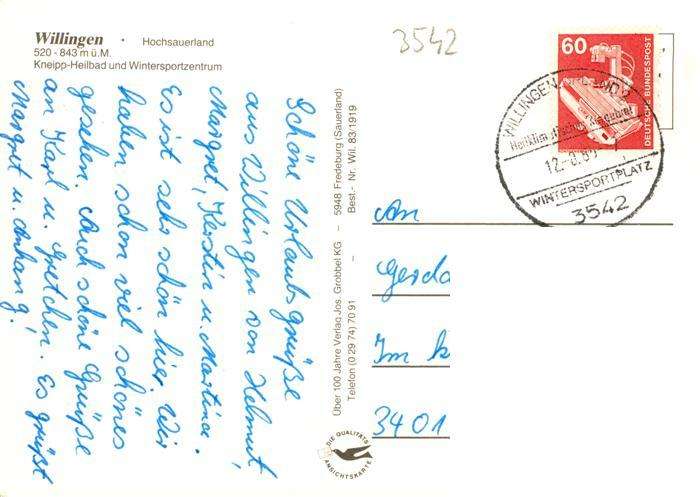 Willingen · Hochsauerland
520 - 843 m ü.M.
Kneipp-Heilbad und Wintersportzentrum
3542
60
DEUTSCHE BUNDESPOST
WILLINGEN
Heilklimatischer Kurort
12.-8.8
WINTERSPORTPLATZ
3542
Schöne Urlaubsgrüße
aus Willingen von Helmut,
Margret, Kerstin u. Martina.
Es ist sehr schön hier. Wir
haben schon viel schönes
gesehen. Auch schöne Grüße
an Karl u. Gretchen. Es grüßt
Margret u. Anhang!
Über 100 Jahre Verlag Jos. Grobbel KG – 5948 Fredeburg (Sauerland)
Telefon (0 29 74) 70 91 – Best.- Nr. Wil. 83/1919
DIE QUALITÄTS
ANSICHTSKARTE
An
Gerda
Im
3401